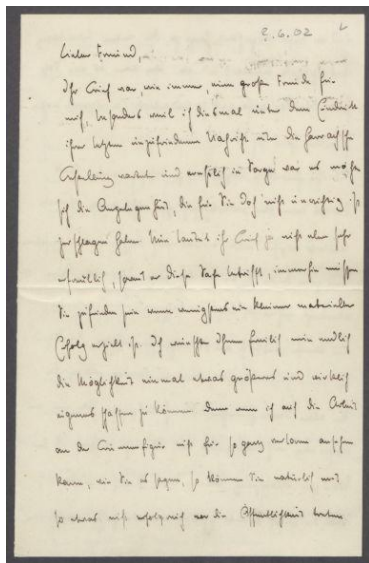 ?.6.02
Lieber Freund,
Ihr Brief war, wie immer, eine große Freude für
mich, besonders weil ich diesmal unter dem Eindruck
ihrer letzten Nachricht über die
wartete und in Sorge war es möchte
sich die Angelegenheit, die für Sie doch nicht unwichtig ist
zerschlagen haben. Nun lautet ihr Brief ja nicht eben sehr
erfreulich, soweit er diese Sache betrifft, immerhin müssen
Sie zufrieden sein wenn wenigstens ein kleiner materieller
Erfolg erzielt ist. Ich wünschte Ihnen freilich nun endlich
die Möglichkeit einmal etwas größeres und wirklich
eigenes schaffen zu können. Denn wenn ich auch die Arbeit
an der Brunnenfigur nicht für so ganz verloren ansehen
kann, wie Sie es sagen, so können Sie natürlich mit
so etwas nicht erfolgreich vor die Öffentlichkeit treten